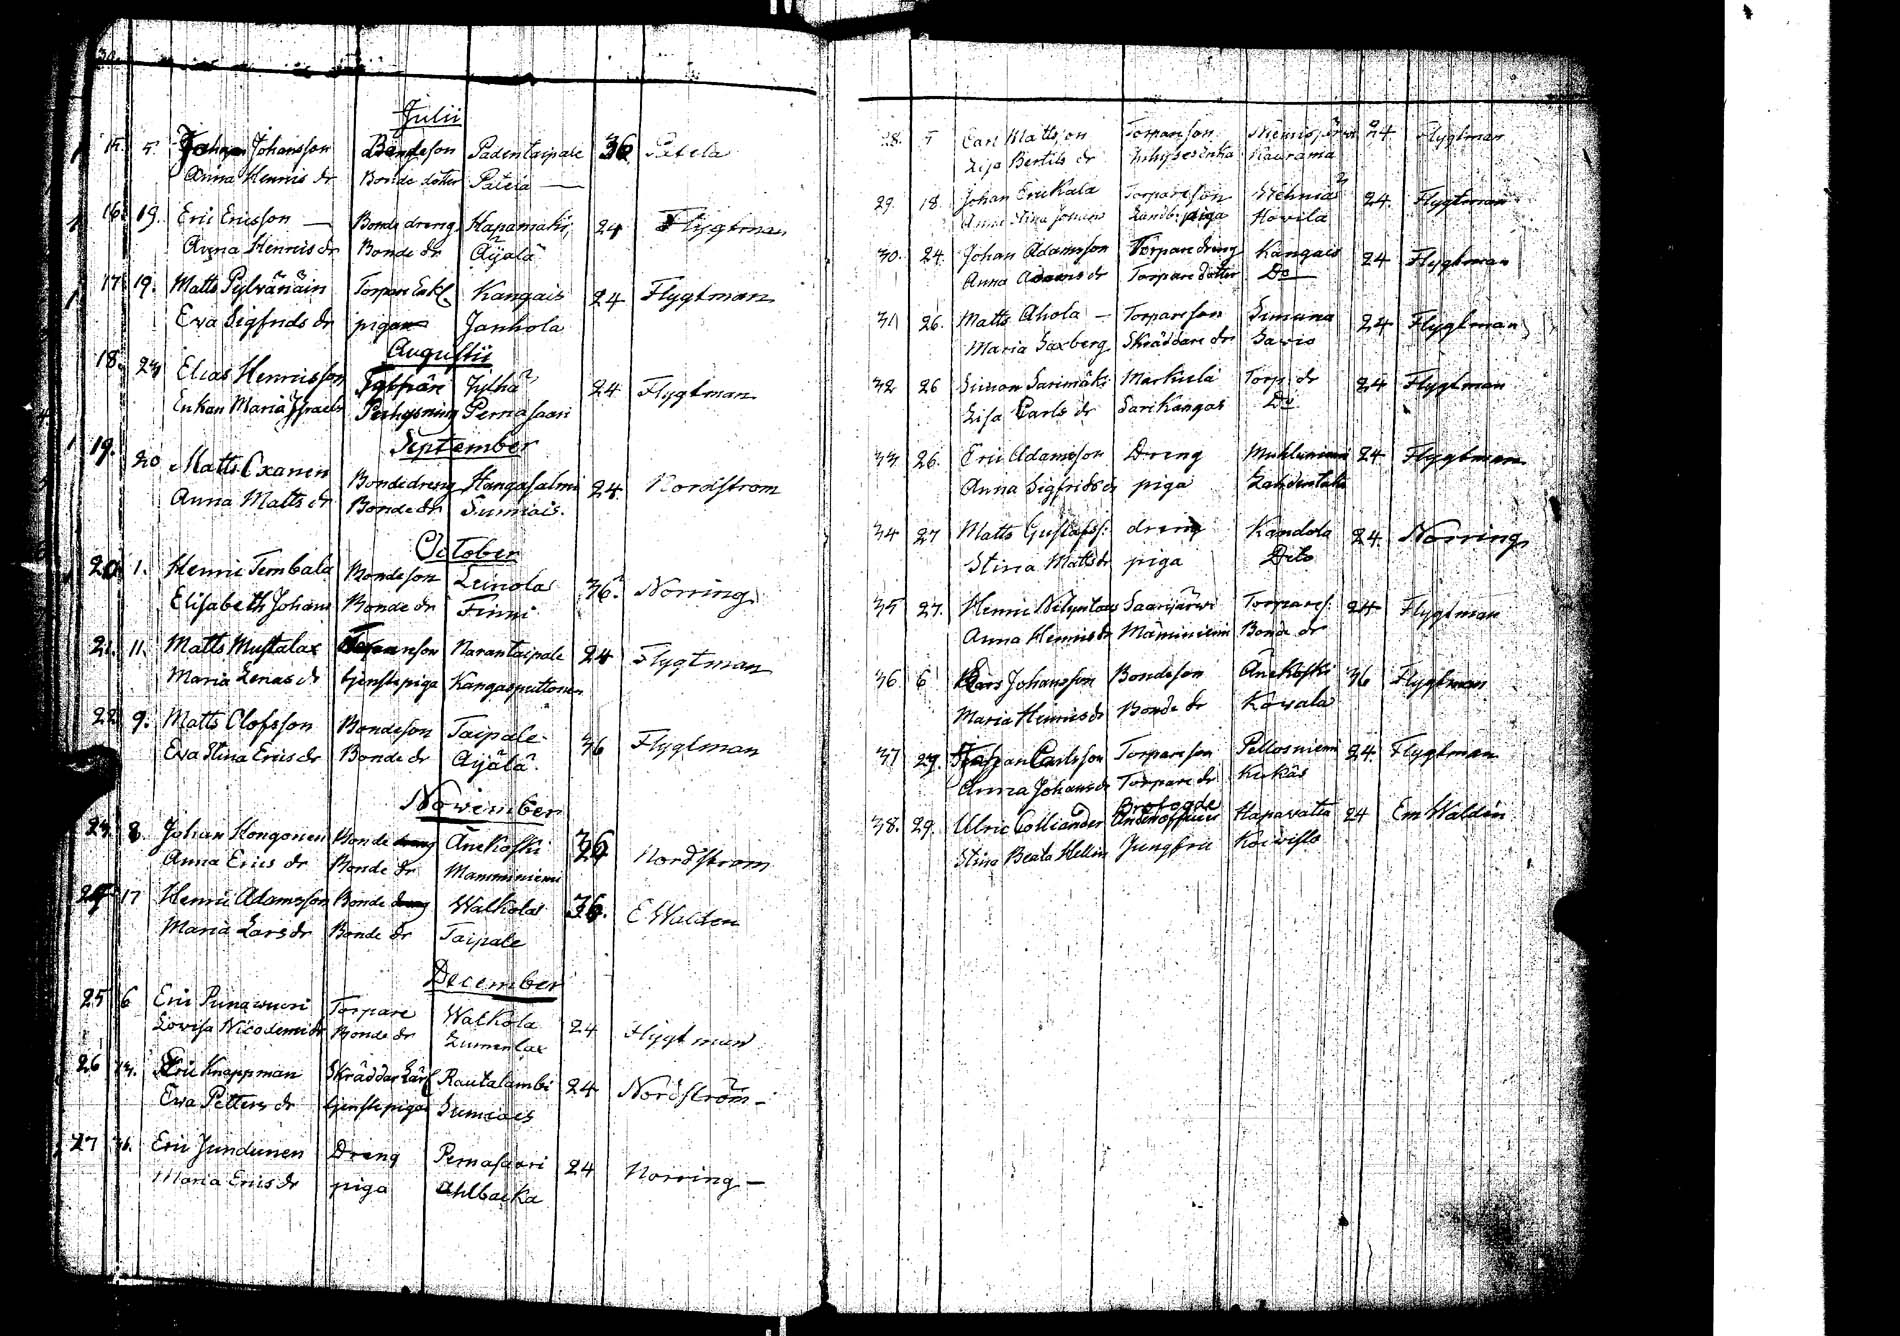 30.
Julii
15. 5. Johan Johansson Bondeson Padentaipale 36 Patela
Anna Henrics dr Bonde dotter Patela —
16. 19. Eric Ericsson — Bonde dreng Hapamäki 24 Flygtman
Anna Henrics dr Bonde dr Äÿälä
17. 19. Matts Pylvänäin Torpare Enkl. Kangais 24 Flygtman
Eva Sigfrids dr pigan Janhola
Augustii
18. 23 Elias Henricsson Torpare Jylhä 24 Flygtman
Enkan Maria Israels Perhysning Pernasaari
September
19. 20 Matts Oxanen Bondedreng Hangasalmi 24 Nordstrom
Anna Matts dr Bonde dr Sumiais.
October
20. 1. Henric Tembala Bondeson Leinola 36. Norring
Elisabeth Johans Bonde dr Finni
21. 11. Matts Mustalax Torpareson Narantaipale 24 Flygtman
Maria Zenas dr tjenstepiga Kangasputtonen
22. 9. Matts Olofsson Bondeson Taipale 36 Flygtman
Eva Stina Erics dr Bonde dr Äÿälä.
November
23. 8. Johan Kongonen Bonde dreng Änekoski 36 Nordstrom
Anna Erics dr Bonde dr Mamminiemi
24 17 Henric Adamsson Bonde dreng Walkola 36. E Walden
Maria Lars dr Bonde dr Taipale
December
25 6 Eric Punawuori Torpare Walkola 24 Flygtman
Lovisa Nicodemi dr Bonde dr Lumenlax
26 13. Eric Knappman Skräddar Lärl. Rautalambi 24 Nordström —
Eva Petters dr tjenstepiga Sumiais
27 26. Eric Jundunen Dreng Pernasaari 24 Norring —
Maria Erics dr piga Ahlbacka
28. 5 Carl Mattsson Torpareson Niemisjärvi 24 Flygtman
Lisa Bertils dr Inhyseenka Kaurama
29. 18. Johan Erickala Torpareson 24. Flygtman
Anna Stina Johans Landb: piga Hovila
30. 24. Johan Adamsson Torpare dreng Kangais 24 Flygtman
Anna Adams dr Torpare dotter Do
31 26. Matts Ahola — Torpareson Simuna 24 Flygtman
Maria Saxberg Skräddare dr Savio
32 26 Simon Sarimäki Markula Torp. dr 24 Flygtman
Lisa Carls dr Sarikangas Do
33 26. Eric Adamsson Dreng Muhluniemi 24 Flygtman
Anna Sigfrids dr piga
34 27 Matts Gustafss: dreng Kandola 24. Norring
Stina Matts dr piga Dito
35 27. Henric Saarijärwi Torpares: 24 Flygtman
Anna Henrics dr Mäminiemi Bonde dr
36 6 Lars Johansson Bondeson Änekoski 36 Flygtman
Maria Henrics dr Bonde dr Kovala
37 29. Johan Carlsson Torpareson Pellosniemi 24. Flygtman
Anna Johans dr Torpare dr Kukas
Brofogde
38. 29. Ulric Colliander Underofficer Hapavatta 24 Em Walden
Stina Beata Hellen Jungfru Koivisto